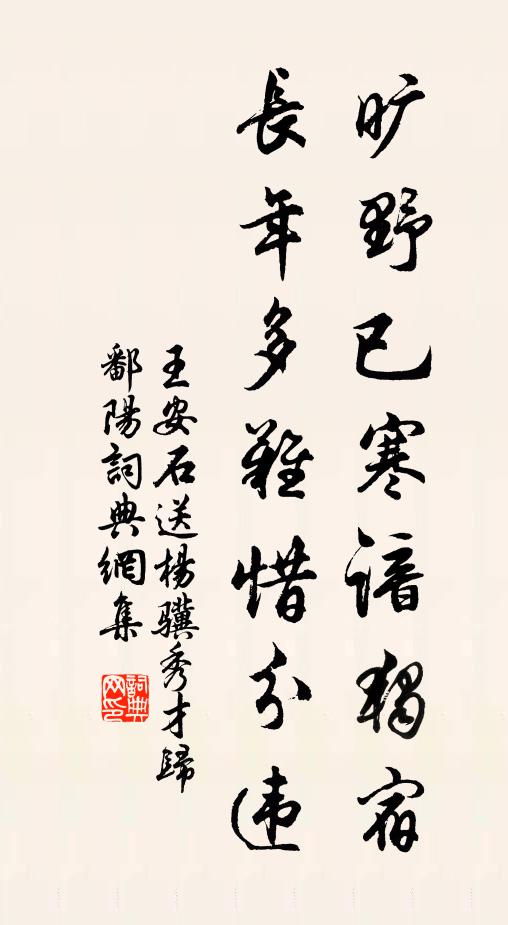 旷野已寒谙獨宿
長年多難惜分违
王安石送楊驥秀才歸
鄱陽詞典網集
詞典网印